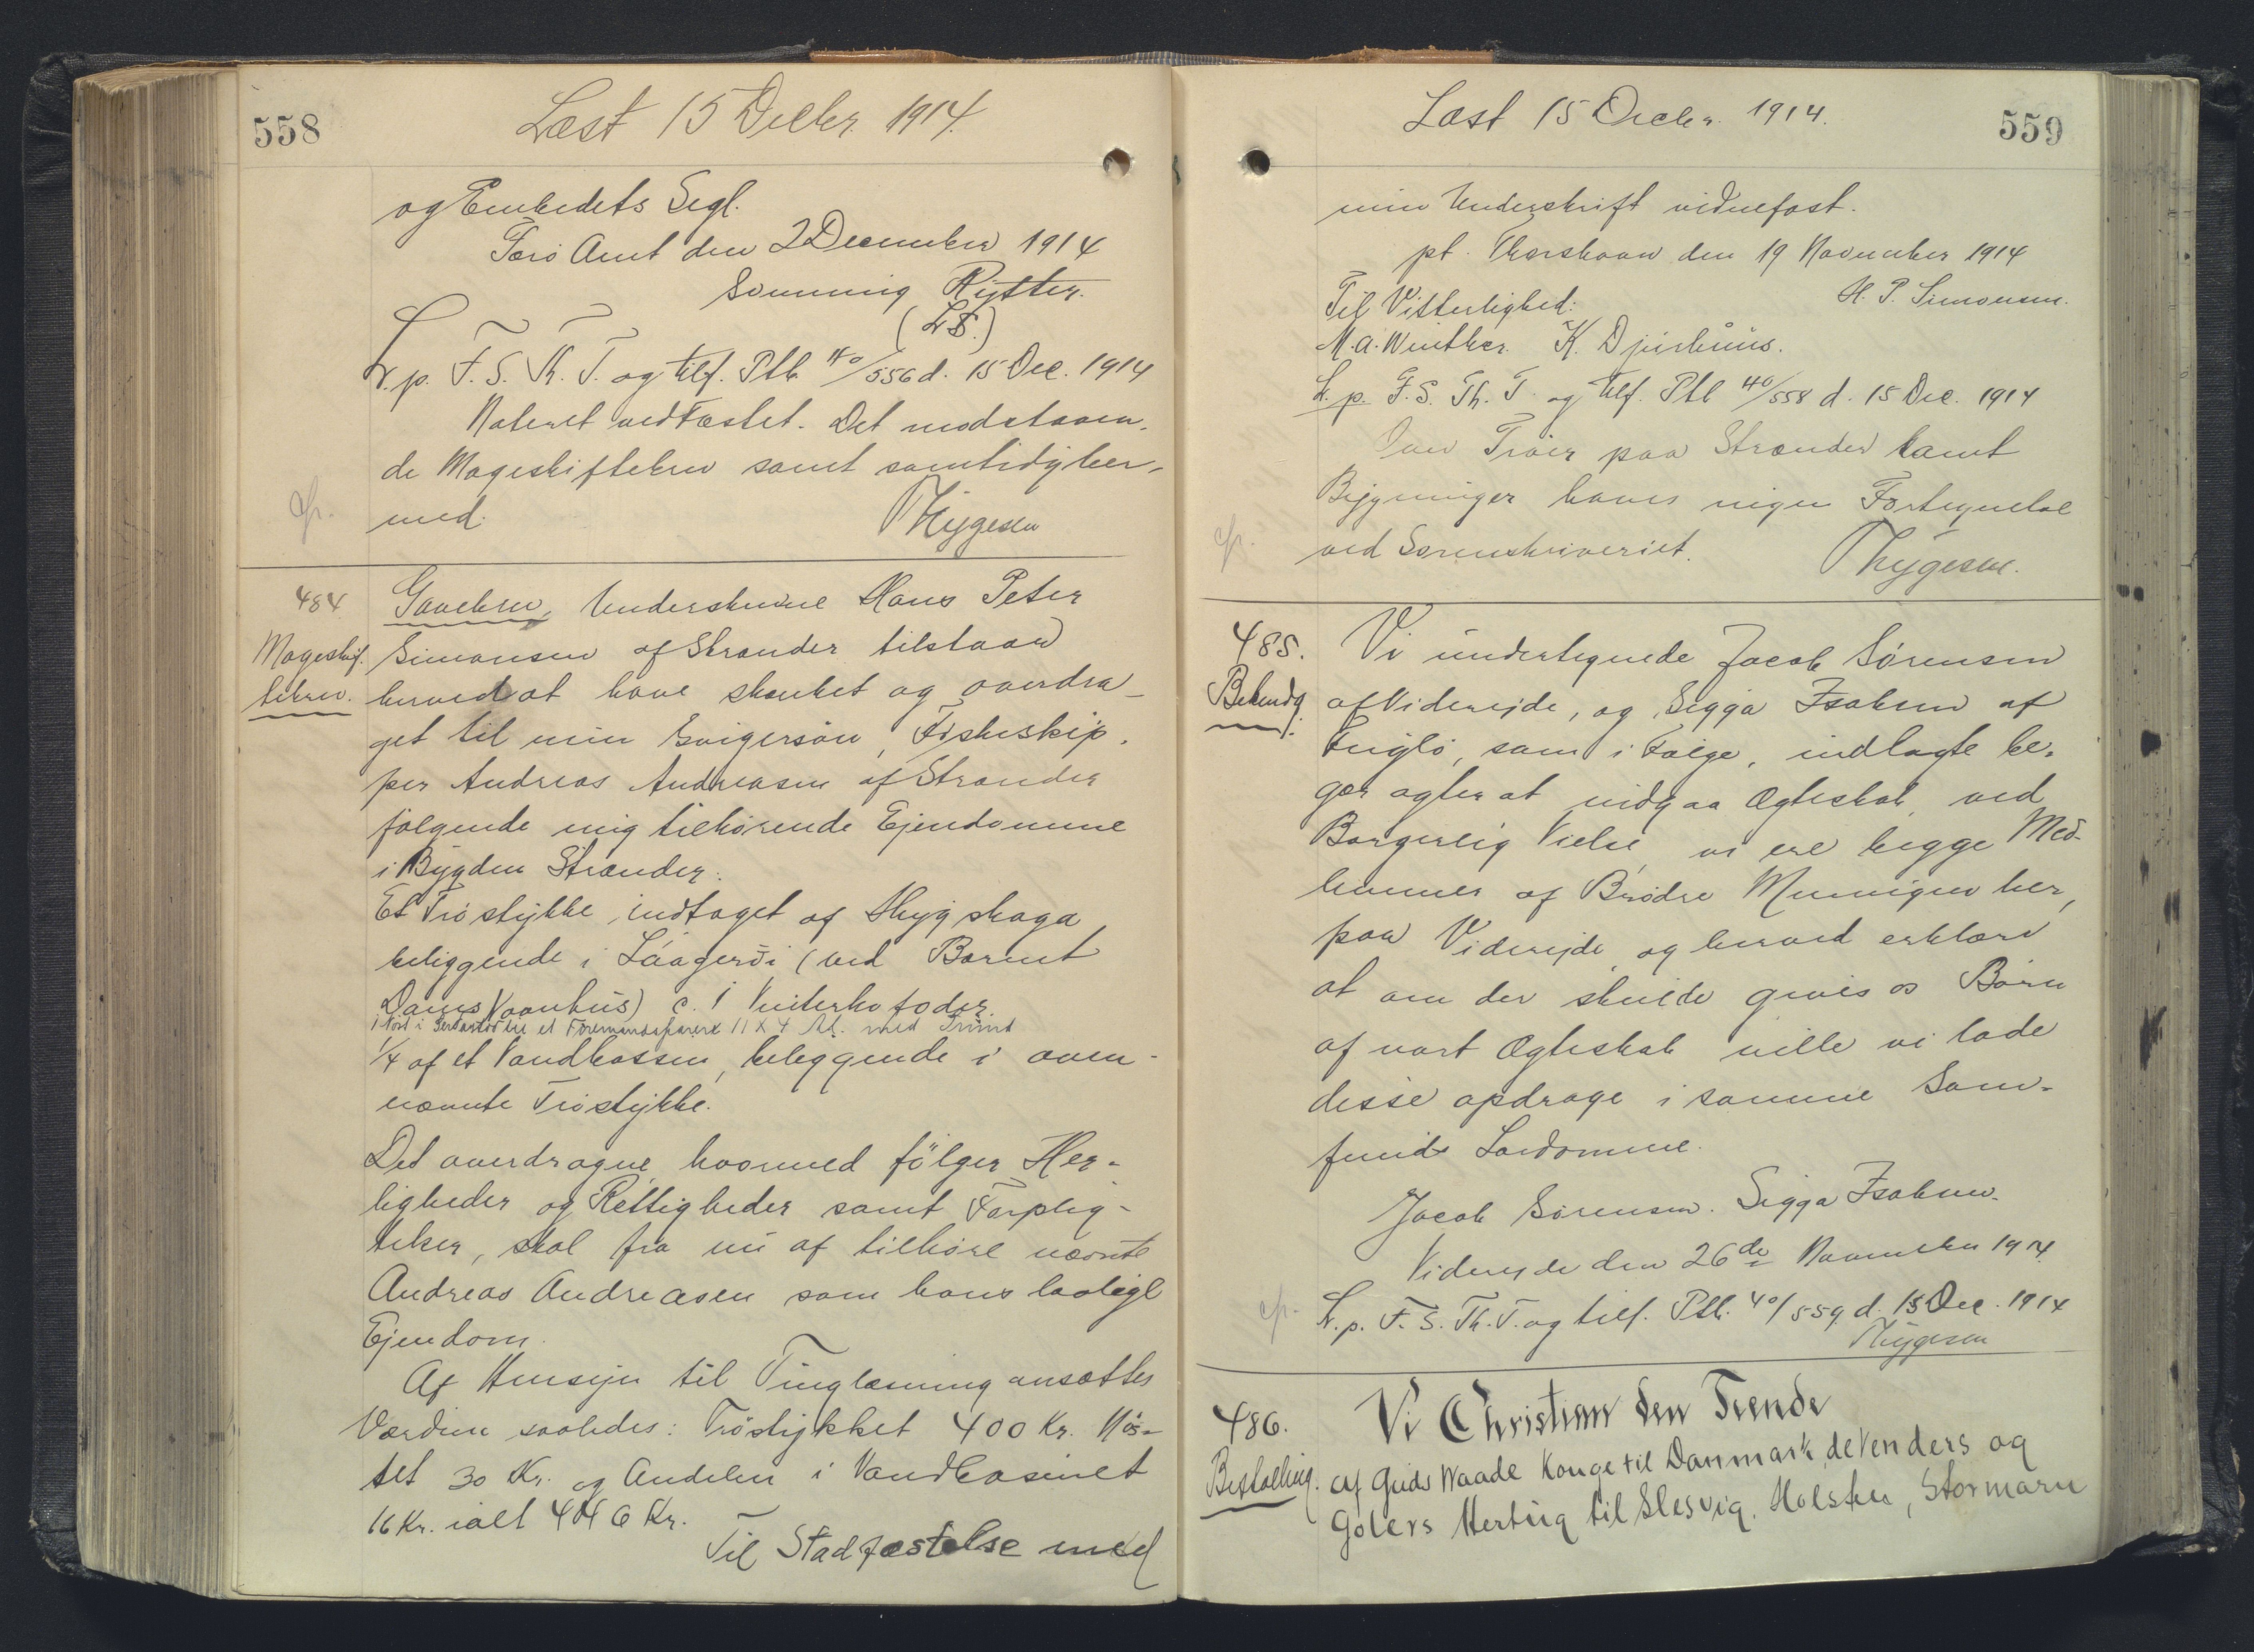 558
Læst 15 Decbr. 1914.
og Embedets Segl.
Færö Amt den 2 December 1914
Sonnung Rytter.
(L.S.)
L. p. F. S. Th. T. og tilf. Ptb. 40/556 d. 15 Dec. 1914
Noteret vedfæstet. Det modstaaen-
de Mageskiftebrev samt samtidig her-
med.
cfr.
Thygesen
484.
Mageskif-
tebrev.
Gavebrev, Underskrevne Hans Peter
Simonsen af Strænder tilstaar
herved at have skænket og overdra-
get til min Svigersön, Fiskeskip-
per Andreas Andreasen af Strænder
følgende mig tilhørende Ejendomme
i Bygden Strænder.
Et Tröstykke, indtaget af Skyg skaga
beliggende i Láagerði (ved Barnet
Daims Vaanhús) c. 1 Vinterkofoder.
1 Nöst i Gerdastöd til et Firemandsfarerx 11 x 4 Al. med Grund
1/4 af et Vandkassen, beliggende i oven-
nævnte Tröstykke.
Det overdragne, hvormed fölger Her-
ligheder og Rettigheder samt Forplig-
telser, skal fra nú af tilhøre nævnte
Andreas Andreasen som hans lovlige
Ejendom.
Af Hensyn til Tinglæsning ansættes
Værdien saaledes: Tröstykket 400 Kr. Nös-
tet 30 Kr. og Andelen i Vandbasinet
16 Kr. ialt 446 Kr.
Til Stadfæstelse med
559
Læst 15 Decbr. 1914.
min Underskrift vidnefast.
pt. Thorshavn den 19 November 1914
H. P. Simonsen.
Til Vitterlighed:
M. A. Winther. K. Djurhuús.
L. p. F. S. Th. T. og tilf. Ptb 40/558 d. 15 Dec. 1914
Over Tröer paa Strænder samt
Bygninger haves ingen Fortegnelse
ved Sorenskriveriet.
cfr.
Thygesen.
485.
Bekendtg.
Vi undertegnede Jacob Sørensen
af Viderejde, og Sigga Isaksen af
Fuglö, som i Fölge, indlagte be-
gær agter at indgaa Ægteskab ved
Borgerlig Vielse, vi ere begge Med-
lemmer af Brödre Menigen her,
paa Viderejde, og herved erklære
at om der skulde gives os Börn
af vort Ægteskab ville vi lade
disse opdrage i samme Sam-
funds Lærdomme.
Jacob Sörensen. Sigga Isaksen.
Viderejde den 26de November 1914
cfr.
L. p. F. S. Th. T. og tilf. Ptb. 40/559 d. 15 Dec. 1914
Thygesen
486.
Bestalling.
Vi Christian den Tiende
af Guds Naade Konge til Danmark, de Venders og
Goters Hertug til Slesvig, Holsten, Stormarn